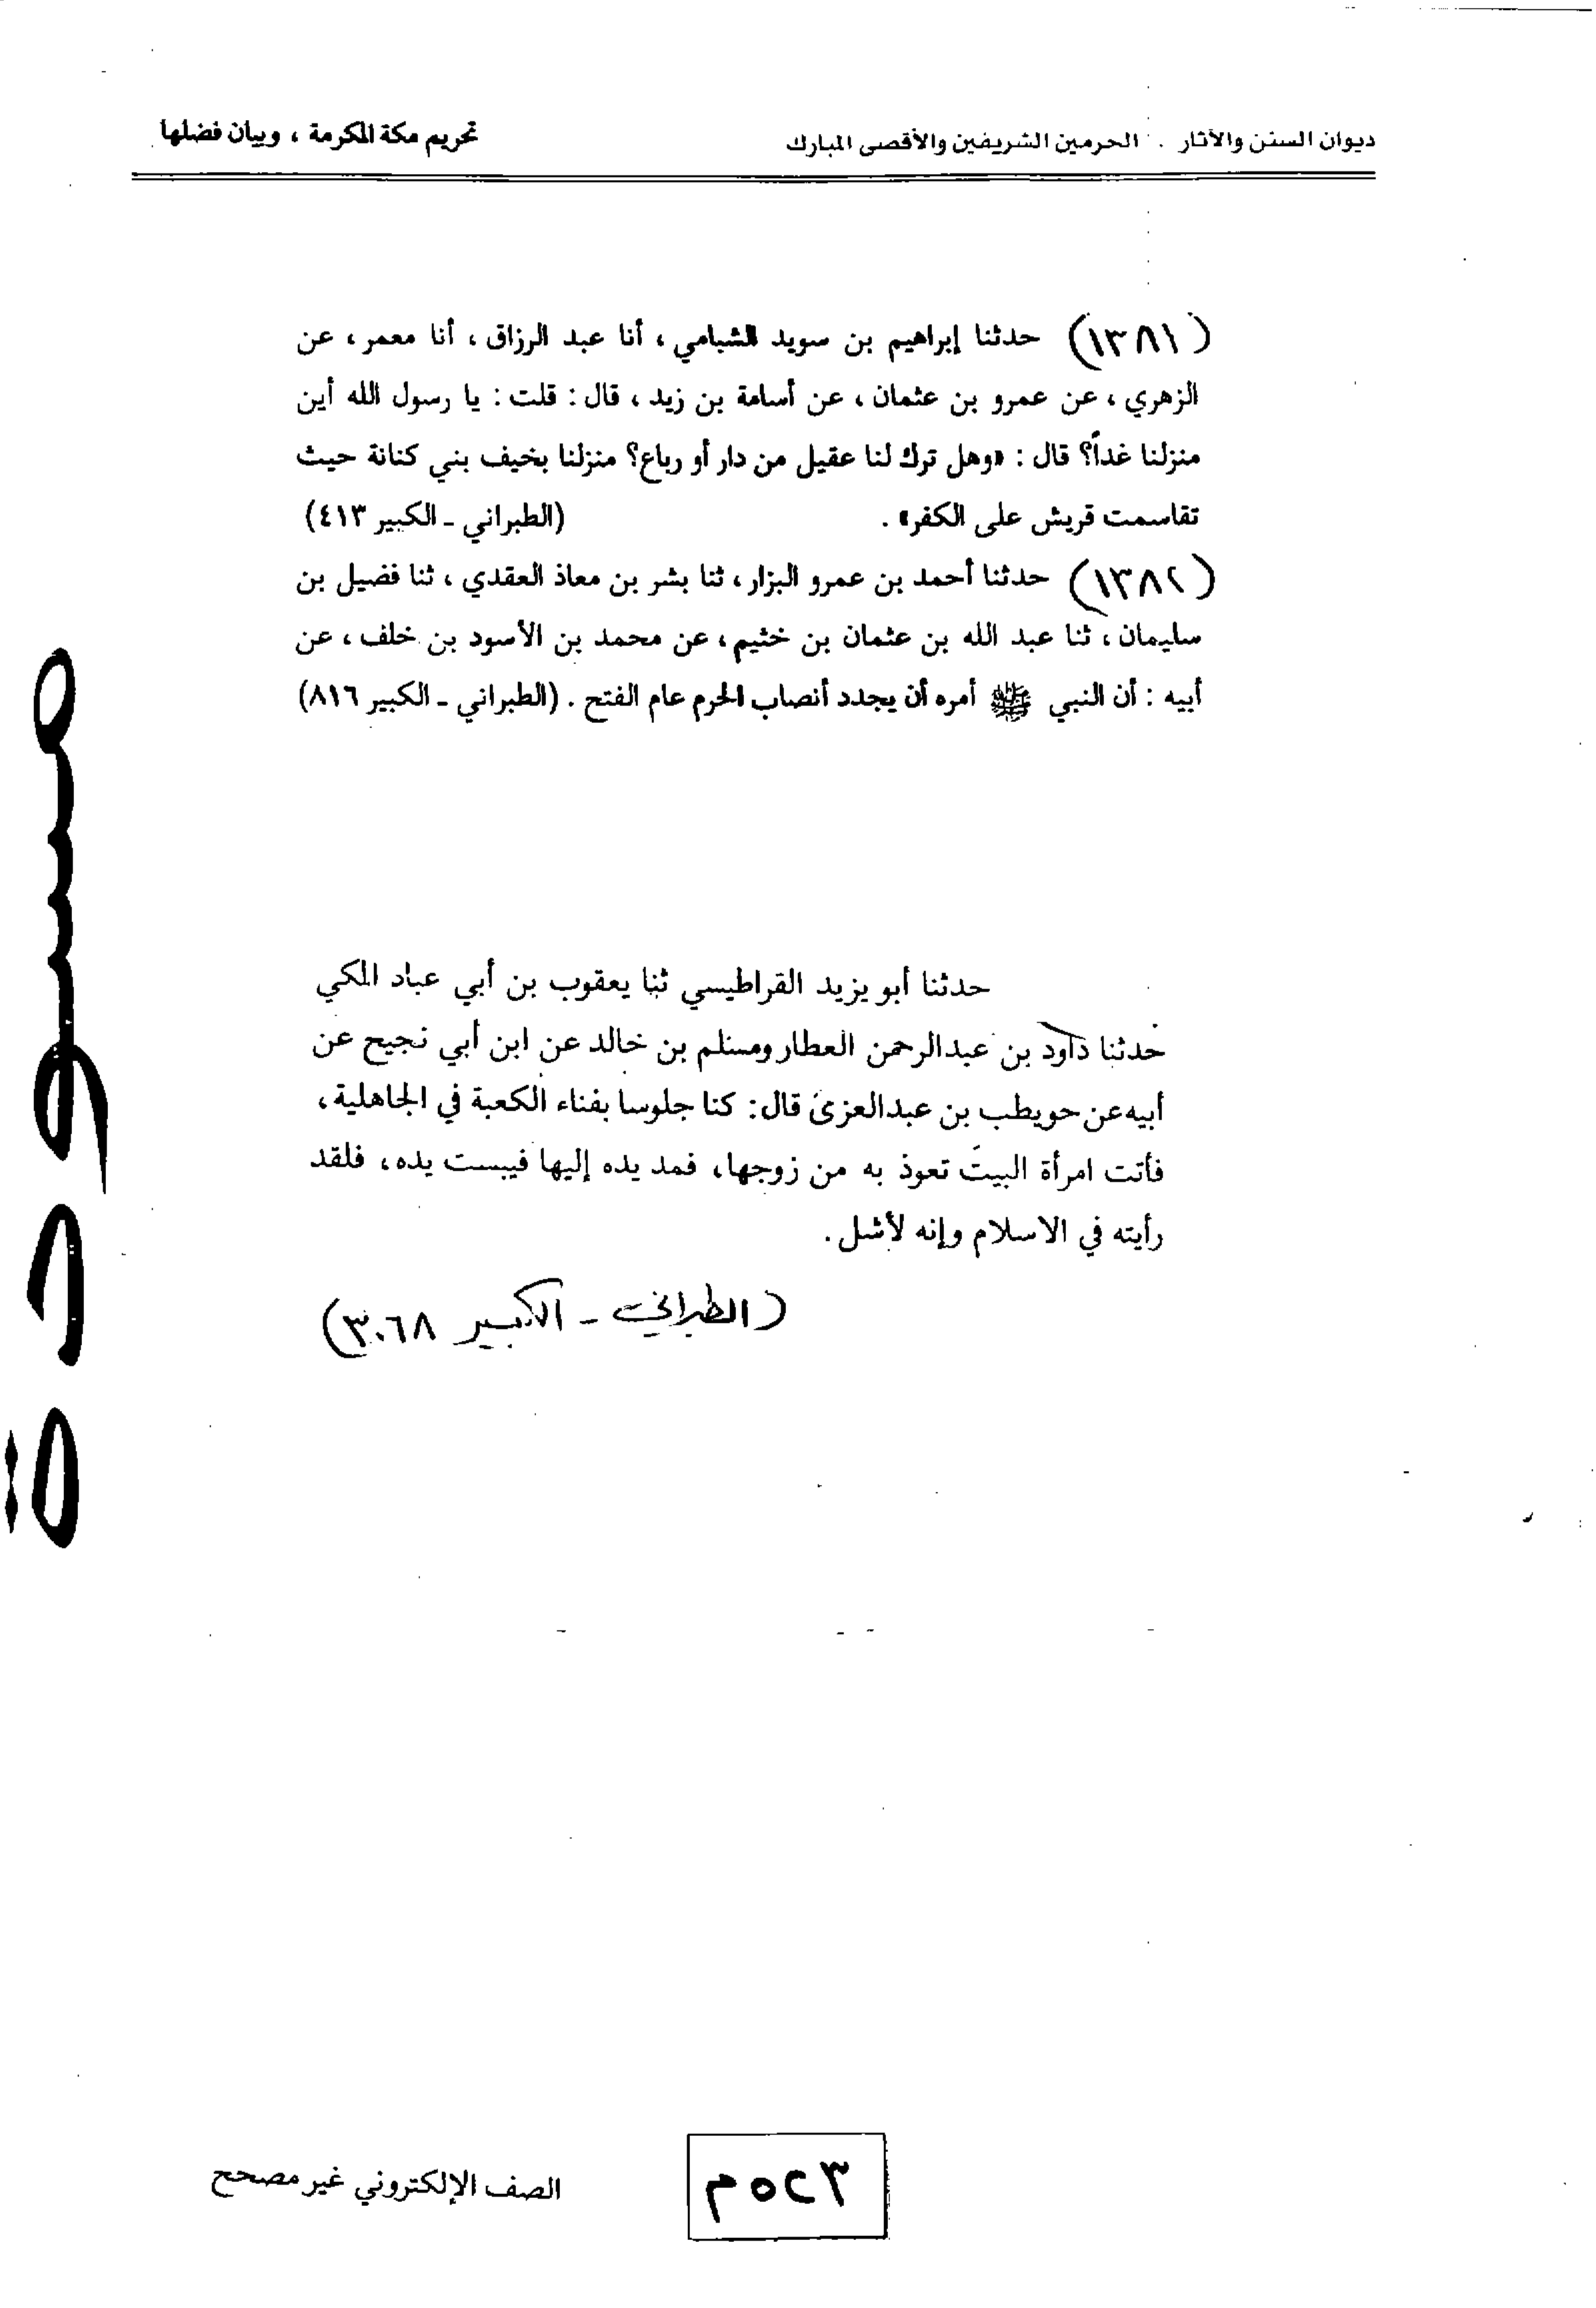 ديوان السنن والآثار . الحرمين الشريفين والأقصى المبارك
تحريم مكة المكرمة ، وبيان فضلها
(١٣٨١) حدثنا إبراهيم بن سويد الشبامي ، أنا عبد الرزاق ، أنا معمر ، عن
الزهري ، عن عمرو بن عثمان ، عن أسامة بن زيد ، قال : قلت : يا رسول الله أين
منزلنا غداً؟ قال : «وهل ترك لنا عقيل من دار أو رباع؟ منزلنا بخيف بني كنانة حيث
تقاسمت قريش على الكفر» . (الطبراني - الكبير ٤١٣)
(١٣٨٢) حدثنا أحمد بن عمرو البزار ، ثنا بشر بن معاذ العقدي ، ثنا فضيل بن
سليمان ، ثنا عبد الله بن عثمان بن خثيم ، عن محمد بن الأسود بن خلف ، عن
أبيه : أن النبي ﷺ أمره أن يجدد أنصاب الحرم عام الفتح . (الطبراني - الكبير ٨١٦)
حدثنا أبو يزيد القراطيسي ثنا يعقوب بن أبي عباد المكي
حدثنا داود بن عبدالرحمن العطار ومسلم بن خالد عن ابن أبي نجيح عن
أبيه عن حويطب بن عبدالعزى قال: كنا جلوسا بفناء الكعبة في الجاهلية،
فأتت امرأة البيت تعوذ به من زوجها، فمد يده إليها فيبست يده، فلقد
رأيته في الاسلام وإنه لأشل.
(الطبراني - الكبير ٣٠٦٨)
مسودة
٥٢٣م
الصف الإلكتروني غير مصحح